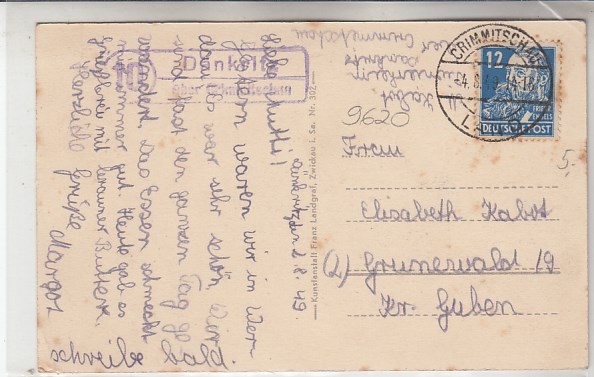 Dänkritz
über Crimmitschau
Dänkritz d. 2. 8. 49.
Liebe Mutti!
Gestern waren wir in Wer-
dau. Es war sehr schön. Wir
sind fast den ganzen Tag ge
wandert. Das Essen schmeckt
mir immer gut. Heute gab es
mit brauner Butter.
Herzliche Grüße
Margot
schreibe bald.
Kunstanstalt Franz Landgraf, Zwickau i. Sa. Nr. 302
Kabot
Dänkritz
über Crimmitschau
CRIMMITSCHAU
12
DEUTSCHE POST
9620
Frau
Elisabeth Kabot
(2) Grunewald 19
Kr. Guben
5.-